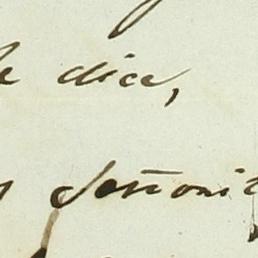 dice,
Señorit